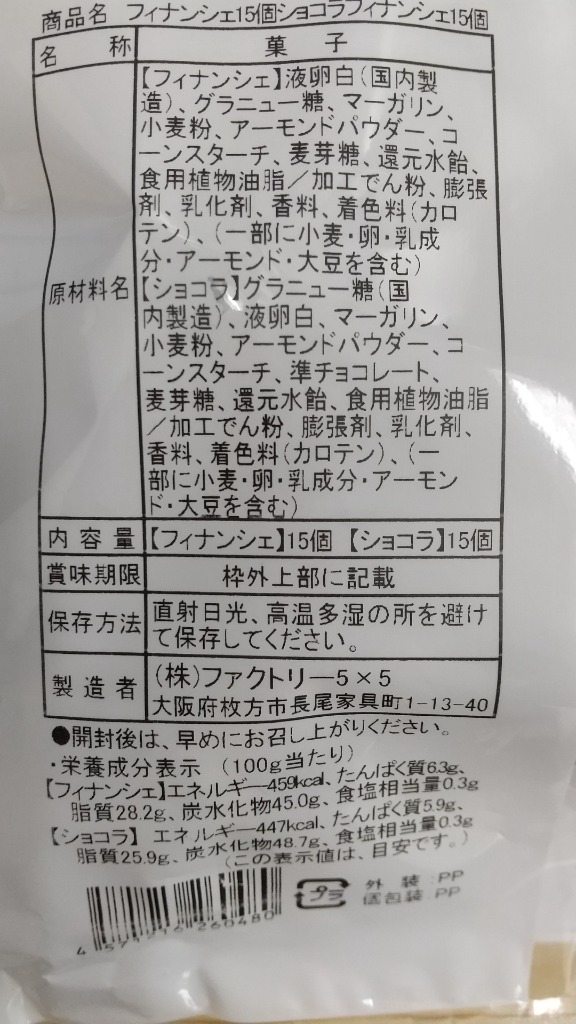 商品名 フィナンシェ15個ショコラフィナンシェ15個
名称 菓子
原材料名
【フィナンシェ】液卵白(国内製
造)、グラニュー糖、マーガリン、
小麦粉、アーモンドパウダー、コ
ーンスターチ、麦芽糖、還元水飴、
食用植物油脂/加工でん粉、膨張
剤、乳化剤、香料、着色料(カロ
テン)、(一部に小麦・卵・乳成
分・アーモンド・大豆を含む)
【ショコラ】グラニュー糖(国
内製造)、液卵白、マーガリン、
小麦粉、アーモンドパウダー、コ
ーンスターチ、準チョコレート、
麦芽糖、還元水飴、食用植物油脂
/加工でん粉、膨張剤、乳化剤、
香料、着色料(カロテン)、(一
部に小麦・卵・乳成分・アーモン
ド・大豆を含む)
内容量 【フィナンシェ】15個 【ショコラ】15個
賞味期限 枠外上部に記載
保存方法 直射日光、高温多湿の所を避け
て保存してください。
製造者 (株)ファクトリー5×5
大阪府枚方市長尾家具町1-13-40
●開封後は、早めにお召し上がりください。
・栄養成分表示 (100g当たり)
【フィナンシェ】エネルギー459kcal、たんぱく質6.3g、
脂質28.2g、炭水化物45.0g、食塩相当量0.3g
【ショコラ】 エネルギー447kcal、たんぱく質5.9g、
脂質25.9g、炭水化物48.7g、食塩相当量0.3g
(この表示値は、目安です。)
プラ 外装:PP
個包装:PP
4 571216 260480